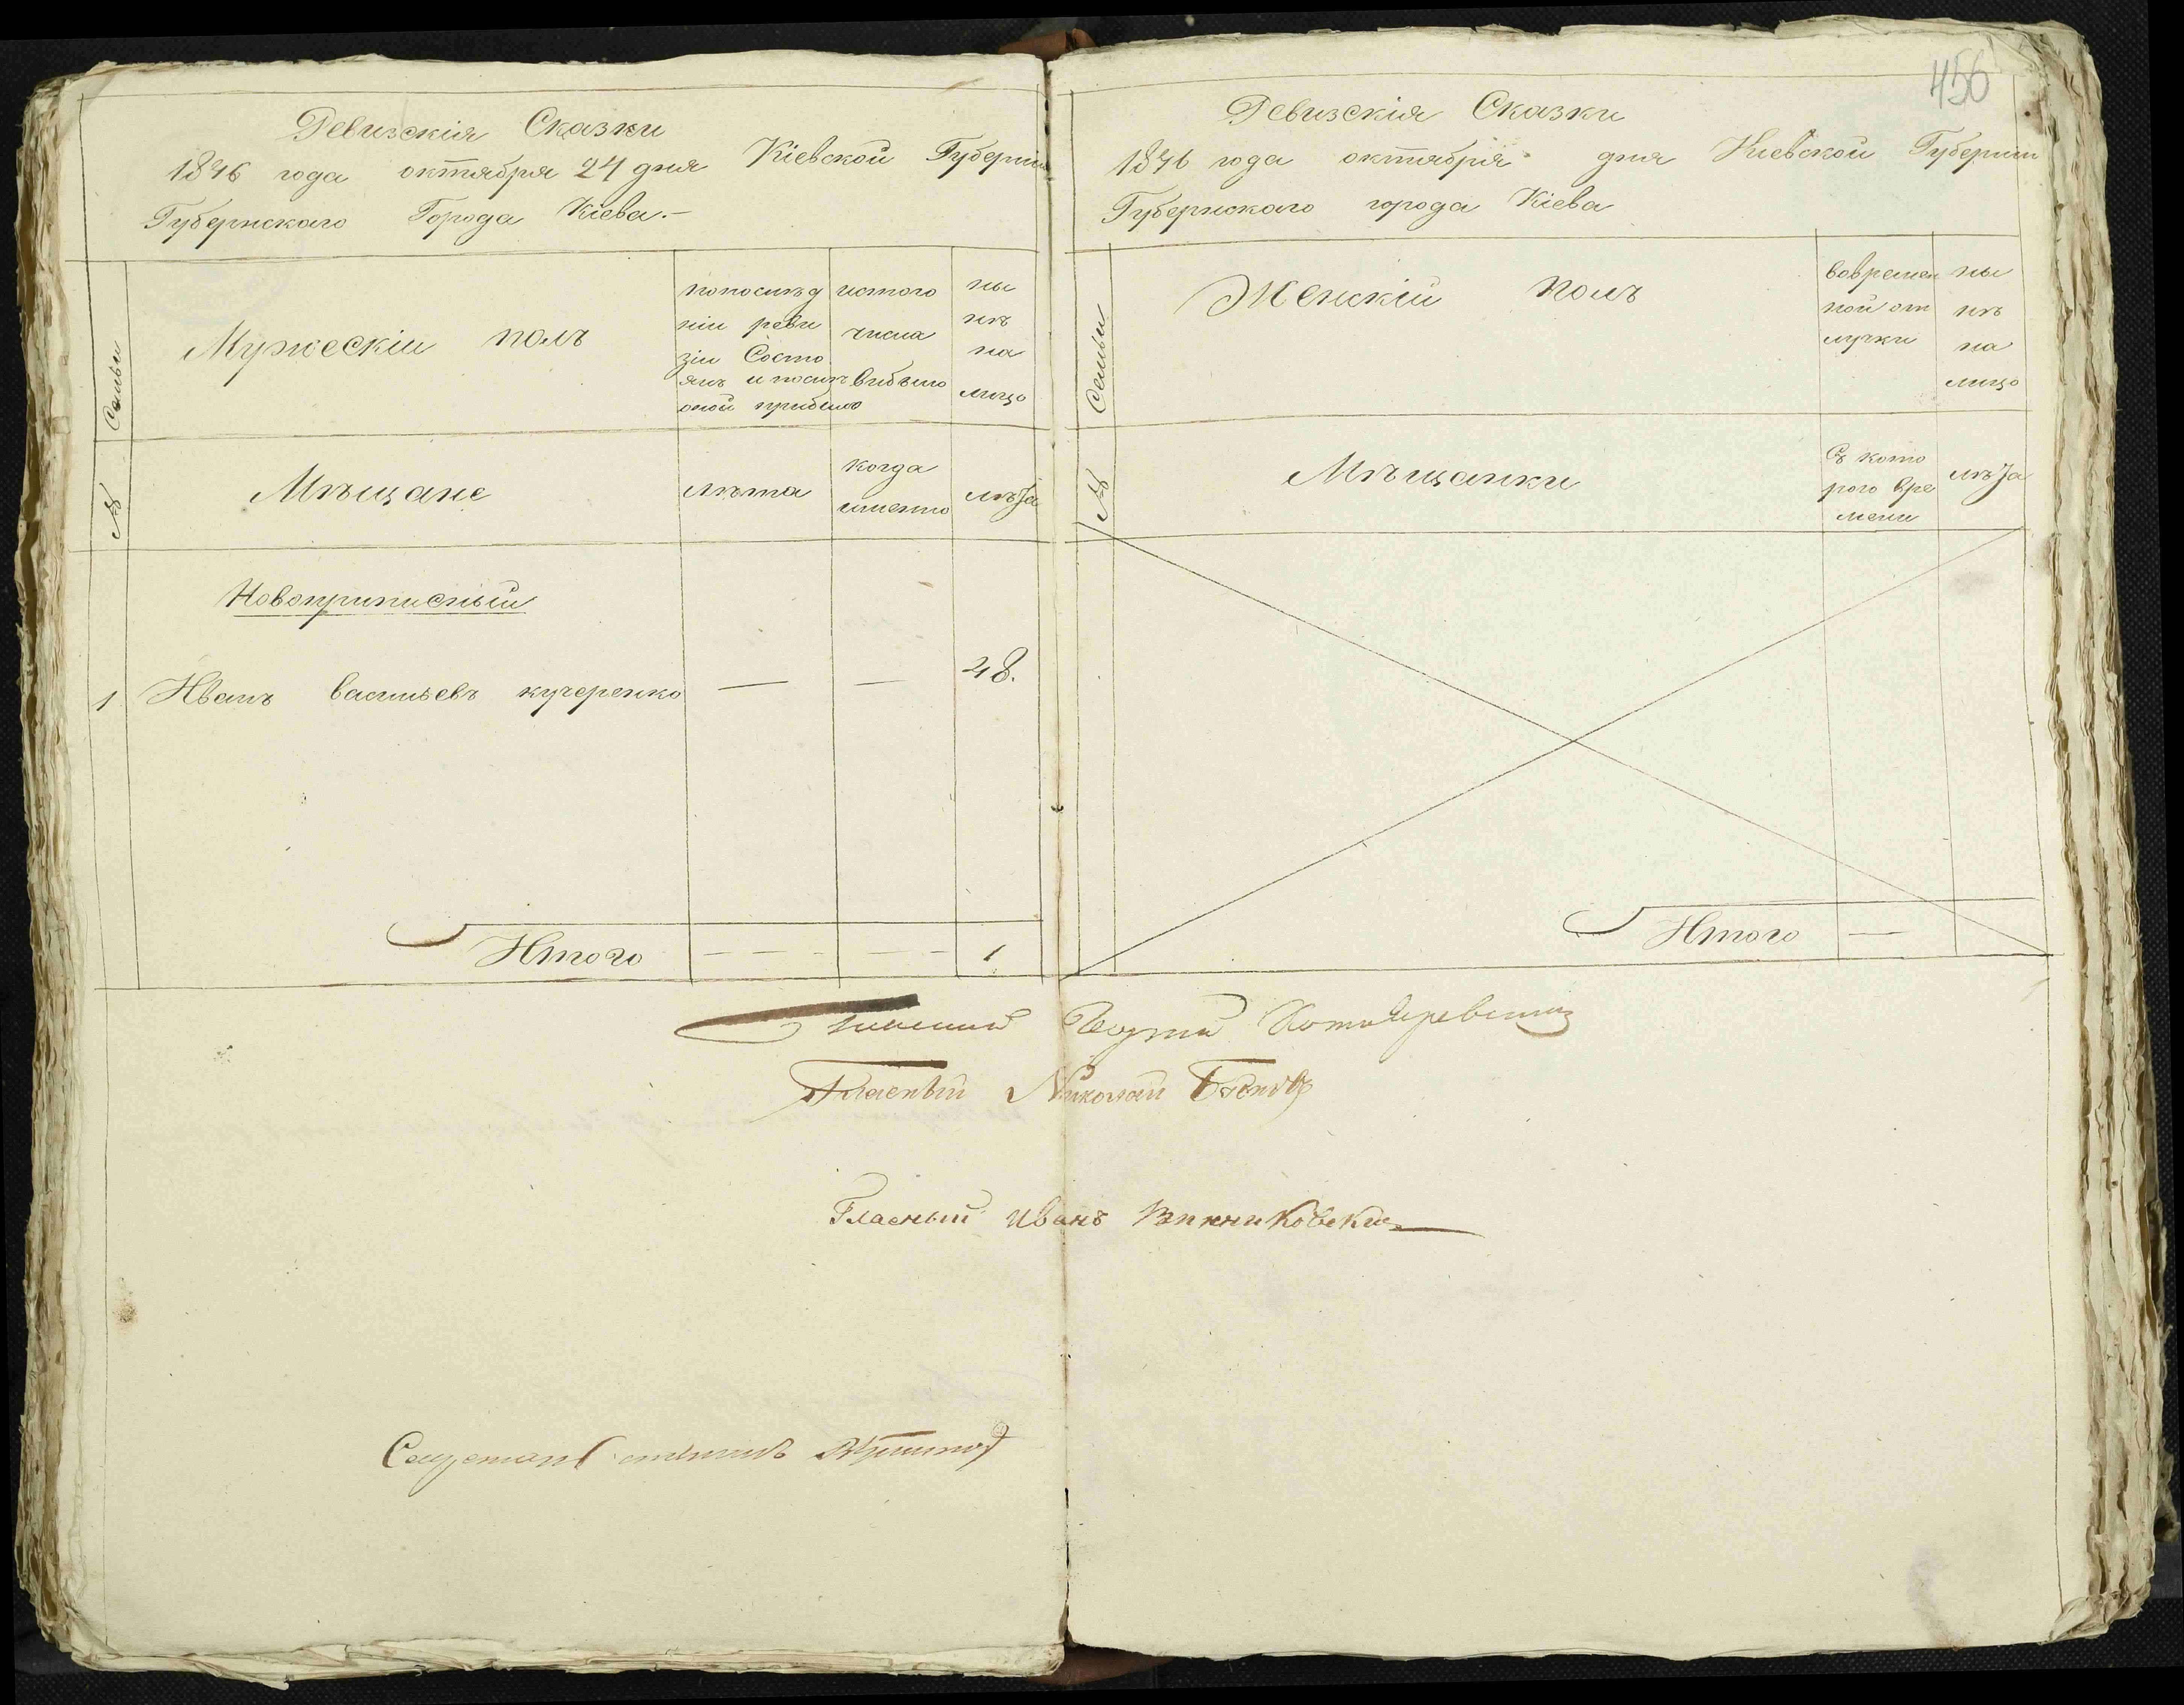 Ревизскія Сказки
1846 года октября 24 дня Кіевской Губерніи
Губернскаго Города Кіева.-
№ Семьи
Мужескій полъ
попослѣд
ніи реви
зіи Состо
ялъ и послѣ
оной прибыло
истого
числа
выбыло
ны
нѣ
на
лицо
Мѣщане
лѣта
когда
именно
лѣта
Новоприписный
1 Иванъ васильевъ кучеренко — — 48.
Итого — — — — 1
456
Ревизскія Сказки
1846 года октября дня Кіевской Губерніи
Губернскаго города Кіева
№ Семьи
Женскій полъ
вовремен
ной от
лучки
ны
нѣ
на
лицо
Мѣщанки
Съ кото
рого вре
мени
лѣта
Итого —
Гласный
Гласный Николай
Гласный Иванъ Винниковскій